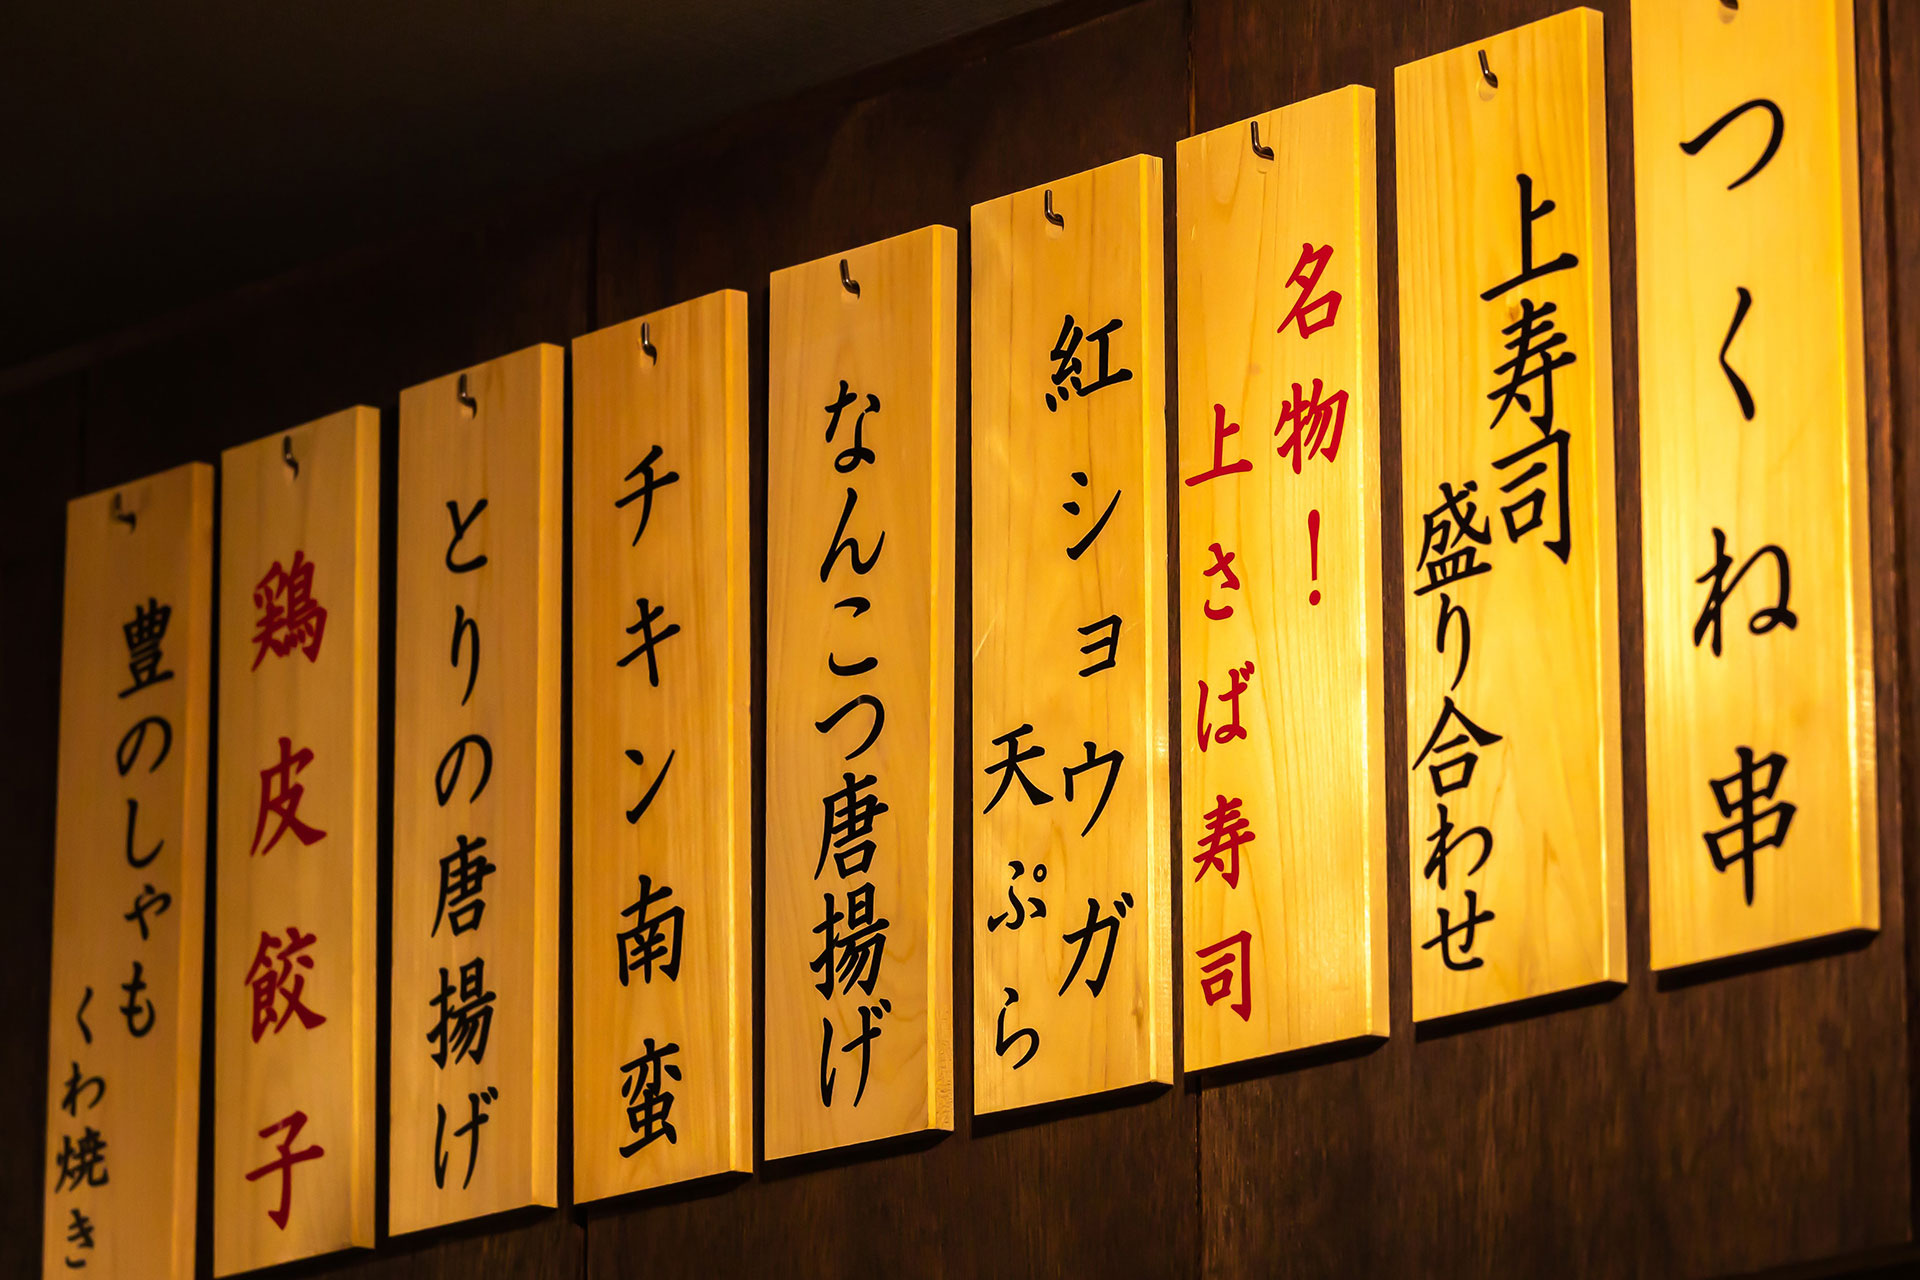 つくね串
上寿司
盛り合わせ
名物！
上さば寿司
紅ショウガ
天ぷら
なんこつ唐揚げ
チキン南蛮
とりの唐揚げ
鶏皮餃子
豊のしゃも
くわ焼き